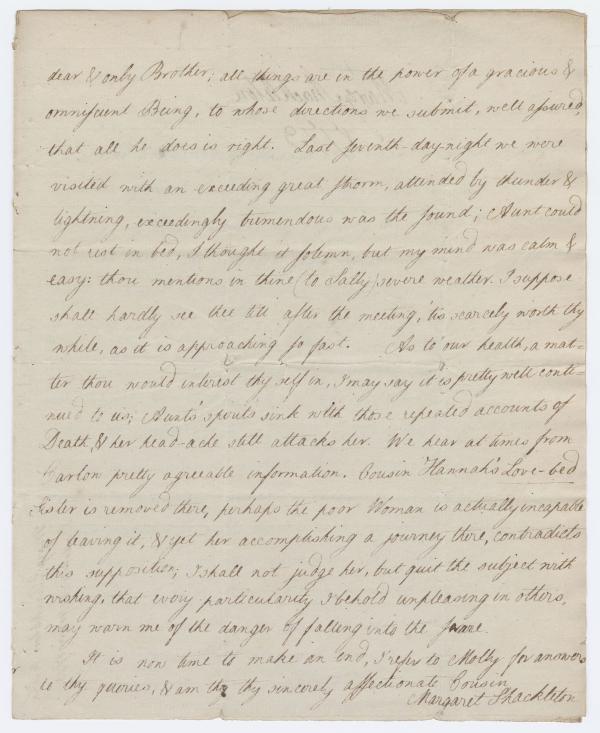 dear & only Brother; all things are in the power of a gracious &
omniscient Being, to whose directions we submit, well assured,
that all he does is right. Last seventh-day-night we were
visited with an exceeding great storm, attended by thunder &
lightning, exceedingly tremendous was the sound; Aunt could
not rest in bed, I thought it solemn, but my mind was calm &
easy: thou mentions in thine (to Sally) severe weather. I suppose
shall hardly see thee till after the meeting, 'tis scarcely worth thy
while, as it is approaching so fast. As to our health, a mat-
ter thou would interest thy self in, I may say it is pretty well conti-
nued to us; Aunt's spirits sink with those repeated accounts of
Death, & her head-ache still attacks her. We hear at times from
Carlow pretty agreeable information. Cousin Hannah's Love-bed
Sister is removed there, perhaps the poor Woman is actually incapable
of leaving it, & yet her accomplishing a journey there, contradicts
this supposition; I shall not judge her, but quit the subject with
wishing, that every particularity I behold unpleasing in others,
may warn me of the danger of falling into the snare.
It is now time to make an end, I refer to Molly for answers
to thy queries, & am thy sincerely affectionate Cousin
Margaret Shackleton